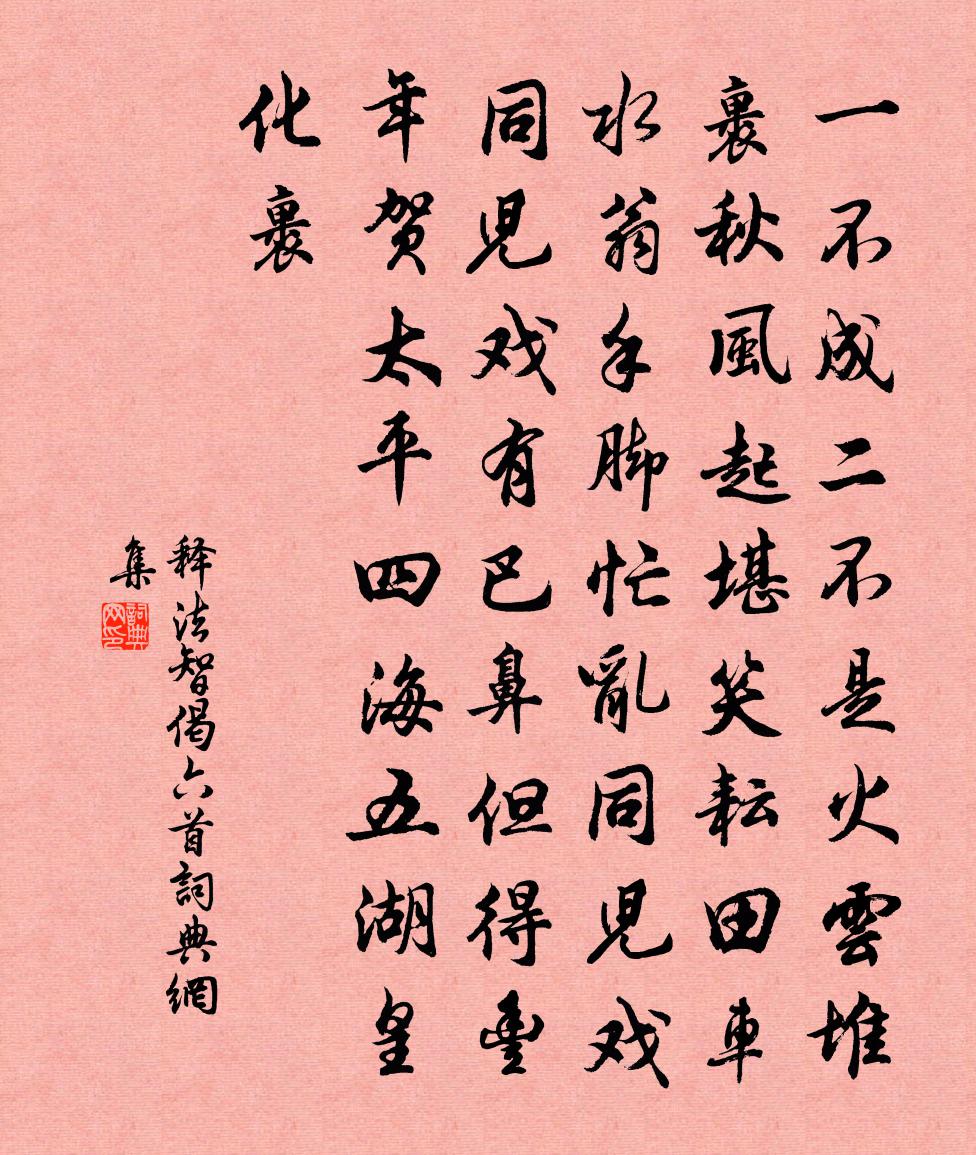 一不成二不是火雲堆
裏秋風起堪笑耘田車
水翁手脚忙亂同児戏
同児戏有巴鼻但得豊
年贺太平四海五湖皇
化裏
释法智偈六首詞典網
集
詞典网印